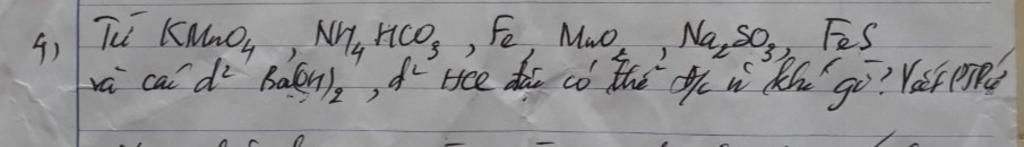 4) Từ KMnO4, NH4HCO3, Fe, MnO2, Na2SO3, FeS
và các d² Ba(OH)2, d² HCl đặc có thể đ/c n khí gì? Viết PTPƯ